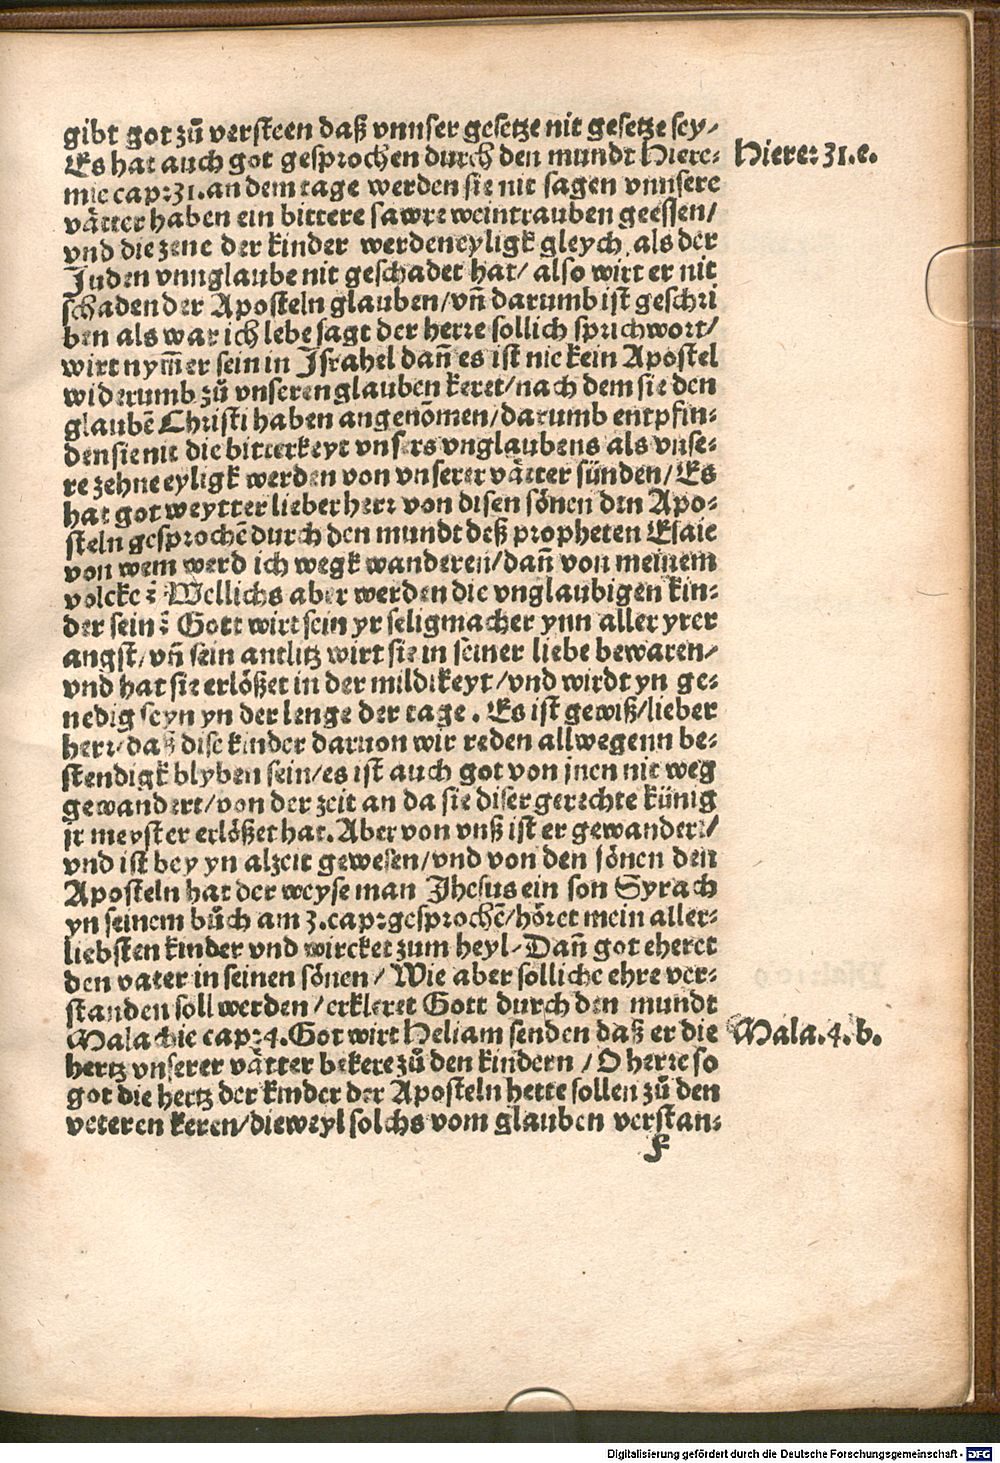 gibt got zů versteen daß vnnser gesetze nit gesetze sey/
Es hat auch got gesprochen durch den mundt Hiere⸗ Hiere: 31. e.
mie cap: 31. an dem tage werden sie nit sagen vnnsere
vätter haben ein bittere sawre weintrauben geessen/
vnd die zene der kinder werden eyligk gleych, als der
Juden vnnglaube nit geschadet hat/ also wirt er nit
schaden der Aposteln glauben/ vñ darumb ist geschri
ben als war ich lebe sagt der herre sollich sprichwort/
wirt nym̄er sein in Israhel dañ es ist nie kein Apostel
widerumb zů vnseren glauben keret/ nach dem sie den
glaubē Christi haben angenōmen/ darumb entpfin⸗
den sie nit die bitterkeyt vnsers vnglaubens als vnse⸗
re zehne eyligk werden von vnserer vätter sünden/ Es
hat got weytter lieber herr von disen sönen den Apo⸗
steln gesprochē durch den mundt deß propheten Esaie
von wem werd ich wegk wanderen/ dañ von meinem
volcke: Wellichs aber werden die vnglaubigen kin⸗
der sein: Gott wirt sein yr seligmacher ynn aller yrer
angst/ vñ sein antlitz wirt sie in seiner liebe bewaren/
vnd hat sie erlößet in der mildikeyt/ vnd wirdt yn ge⸗
nedig seyn yn der lenge der tage. Es ist gewiß/ lieber
herr/ daß dise kinder daruon wir reden allwegenn be⸗
stendigk blyben sein/ es ist auch got von jnen nit weg
gewandert/ von der zeit an da sie diser gerechte künig
jr meyster erlößet hat. Aber von vnß ist er gewandert/
vnd ist bey yn alzeit gewesen/ vnd von den sönen den
Aposteln hat der weyse man Jhesus ein son Syrach
yn seinem bůch am 3. cap: gesprochē/ höret mein aller⸗
liebsten kinder vnd wircket zum heyl/ Dañ got eheret
den vater in seinen sönen/ Wie aber solliche ehre ver⸗
standen soll werden/ erkleret Gott durch den mundt
Malachie cap: 4. Got wirt Heliam senden daß er die Mala. 4. b.
hertz vnserer vätter bekere zů den kindern/ O herre so
got die hertz der kinder der Aposteln hette sollen zů den
veteren keren/ dieweyl solchs vom glauben verstan⸗
f
Digitalisierung gefördert durch die Deutsche Forschungsgemeinschaft - DFG